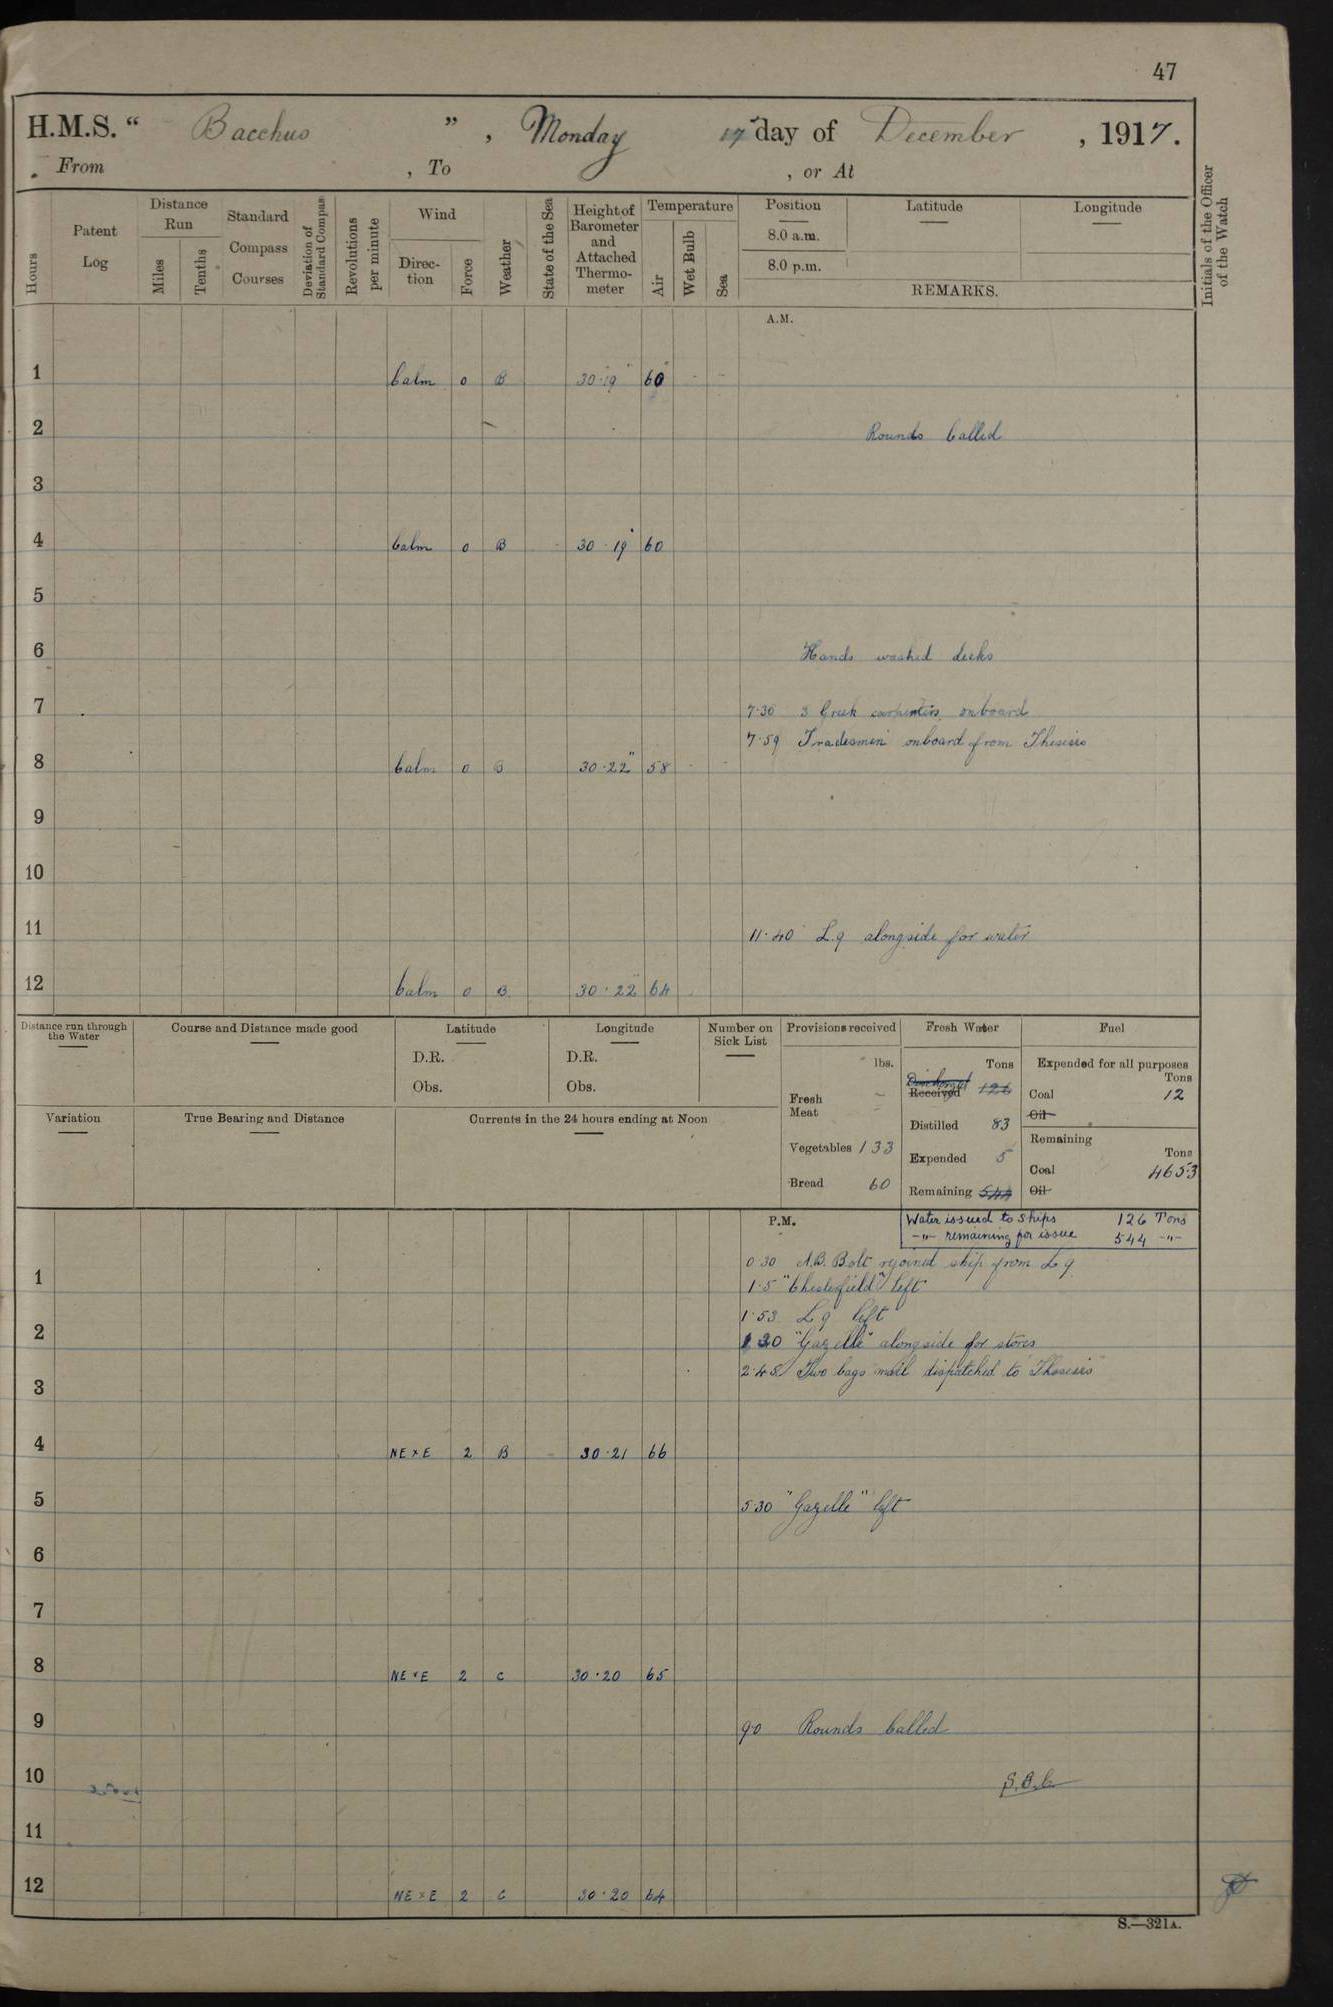 47
H.M.S. “ Bacchus ” , Monday 17 day of December , 1917.
From , To , or At
Hours
Patent Log
Distance Run
Miles
Tenths
Standard Compass Courses
Deviation of Standard Compass
Revolutions per minute
Wind
Direction
Force
Weather
State of the Sea
Height of Barometer and Attached Thermometer
Temperature
Air
Wet Bulb
Sea
Position
8.0 a.m.
8.0 p.m.
Latitude
Longitude
REMARKS.
Initials of the Officer of the Watch
A.M.
1 Calm 0 B 30·19 60
2 Rounds Called
3
4 Calm 0 B 30·19 60
5
6 Hands washed decks
7 7·30 3 Greek carpenters onboard
7·59 Tradesmen onboard from Theseus
8 Calm 0 B 30·22 58
9
10
11 11·40 L.9 alongside for water
12 Calm 0 B 30·22 64
Distance run through the Water
Course and Distance made good
Latitude
D.R.
Obs.
Longitude
D.R.
Obs.
Number on Sick List
Provisions received
lbs.
Fresh Meat -
Vegetables 133
Bread 60
Fresh Water
Tons
Discharged
Received 126
Distilled 83
Expended 5
Remaining 544
Fuel
Expended for all purposes
Tons
Coal 12
Oil
Remaining
Tons
Coal 4653
Oil
Variation
True Bearing and Distance
Currents in the 24 hours ending at Noon
P.M.
Water issued to Ships 126 Tons
-"- remaining for issue 544 -"-
0·30 A.B. Bolt rejoined ship from L 9
1 1·5 "Chesterfield" left
1·53 L 9 left
2 "Gazelle" alongside for stores
2·45 Two bags mail dispatched to "Theseus"
3
4 NE x E 2 B 30·21 66
5 5·30 "Gazelle" left
6
7
8 NE x E 2 C 30·20 65
9 9·0 Rounds Called
10
11
12 NE x E 2 C 30·20 64
S.—321A.